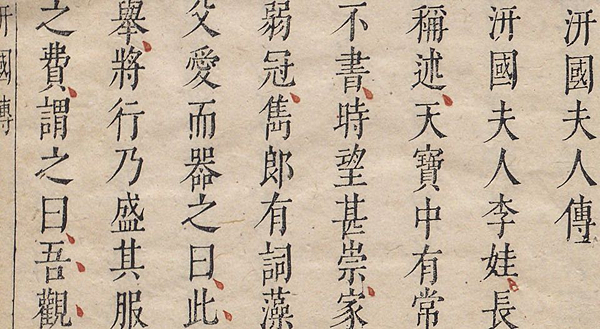 汧國夫人傳
汧國夫人李娃長
稱述天寶中有常
不書時望甚崇家
弱冠雋郎有詞藻
父愛而器之曰此
舉將行乃盛其服
之費謂之曰吾觀
汧國傳